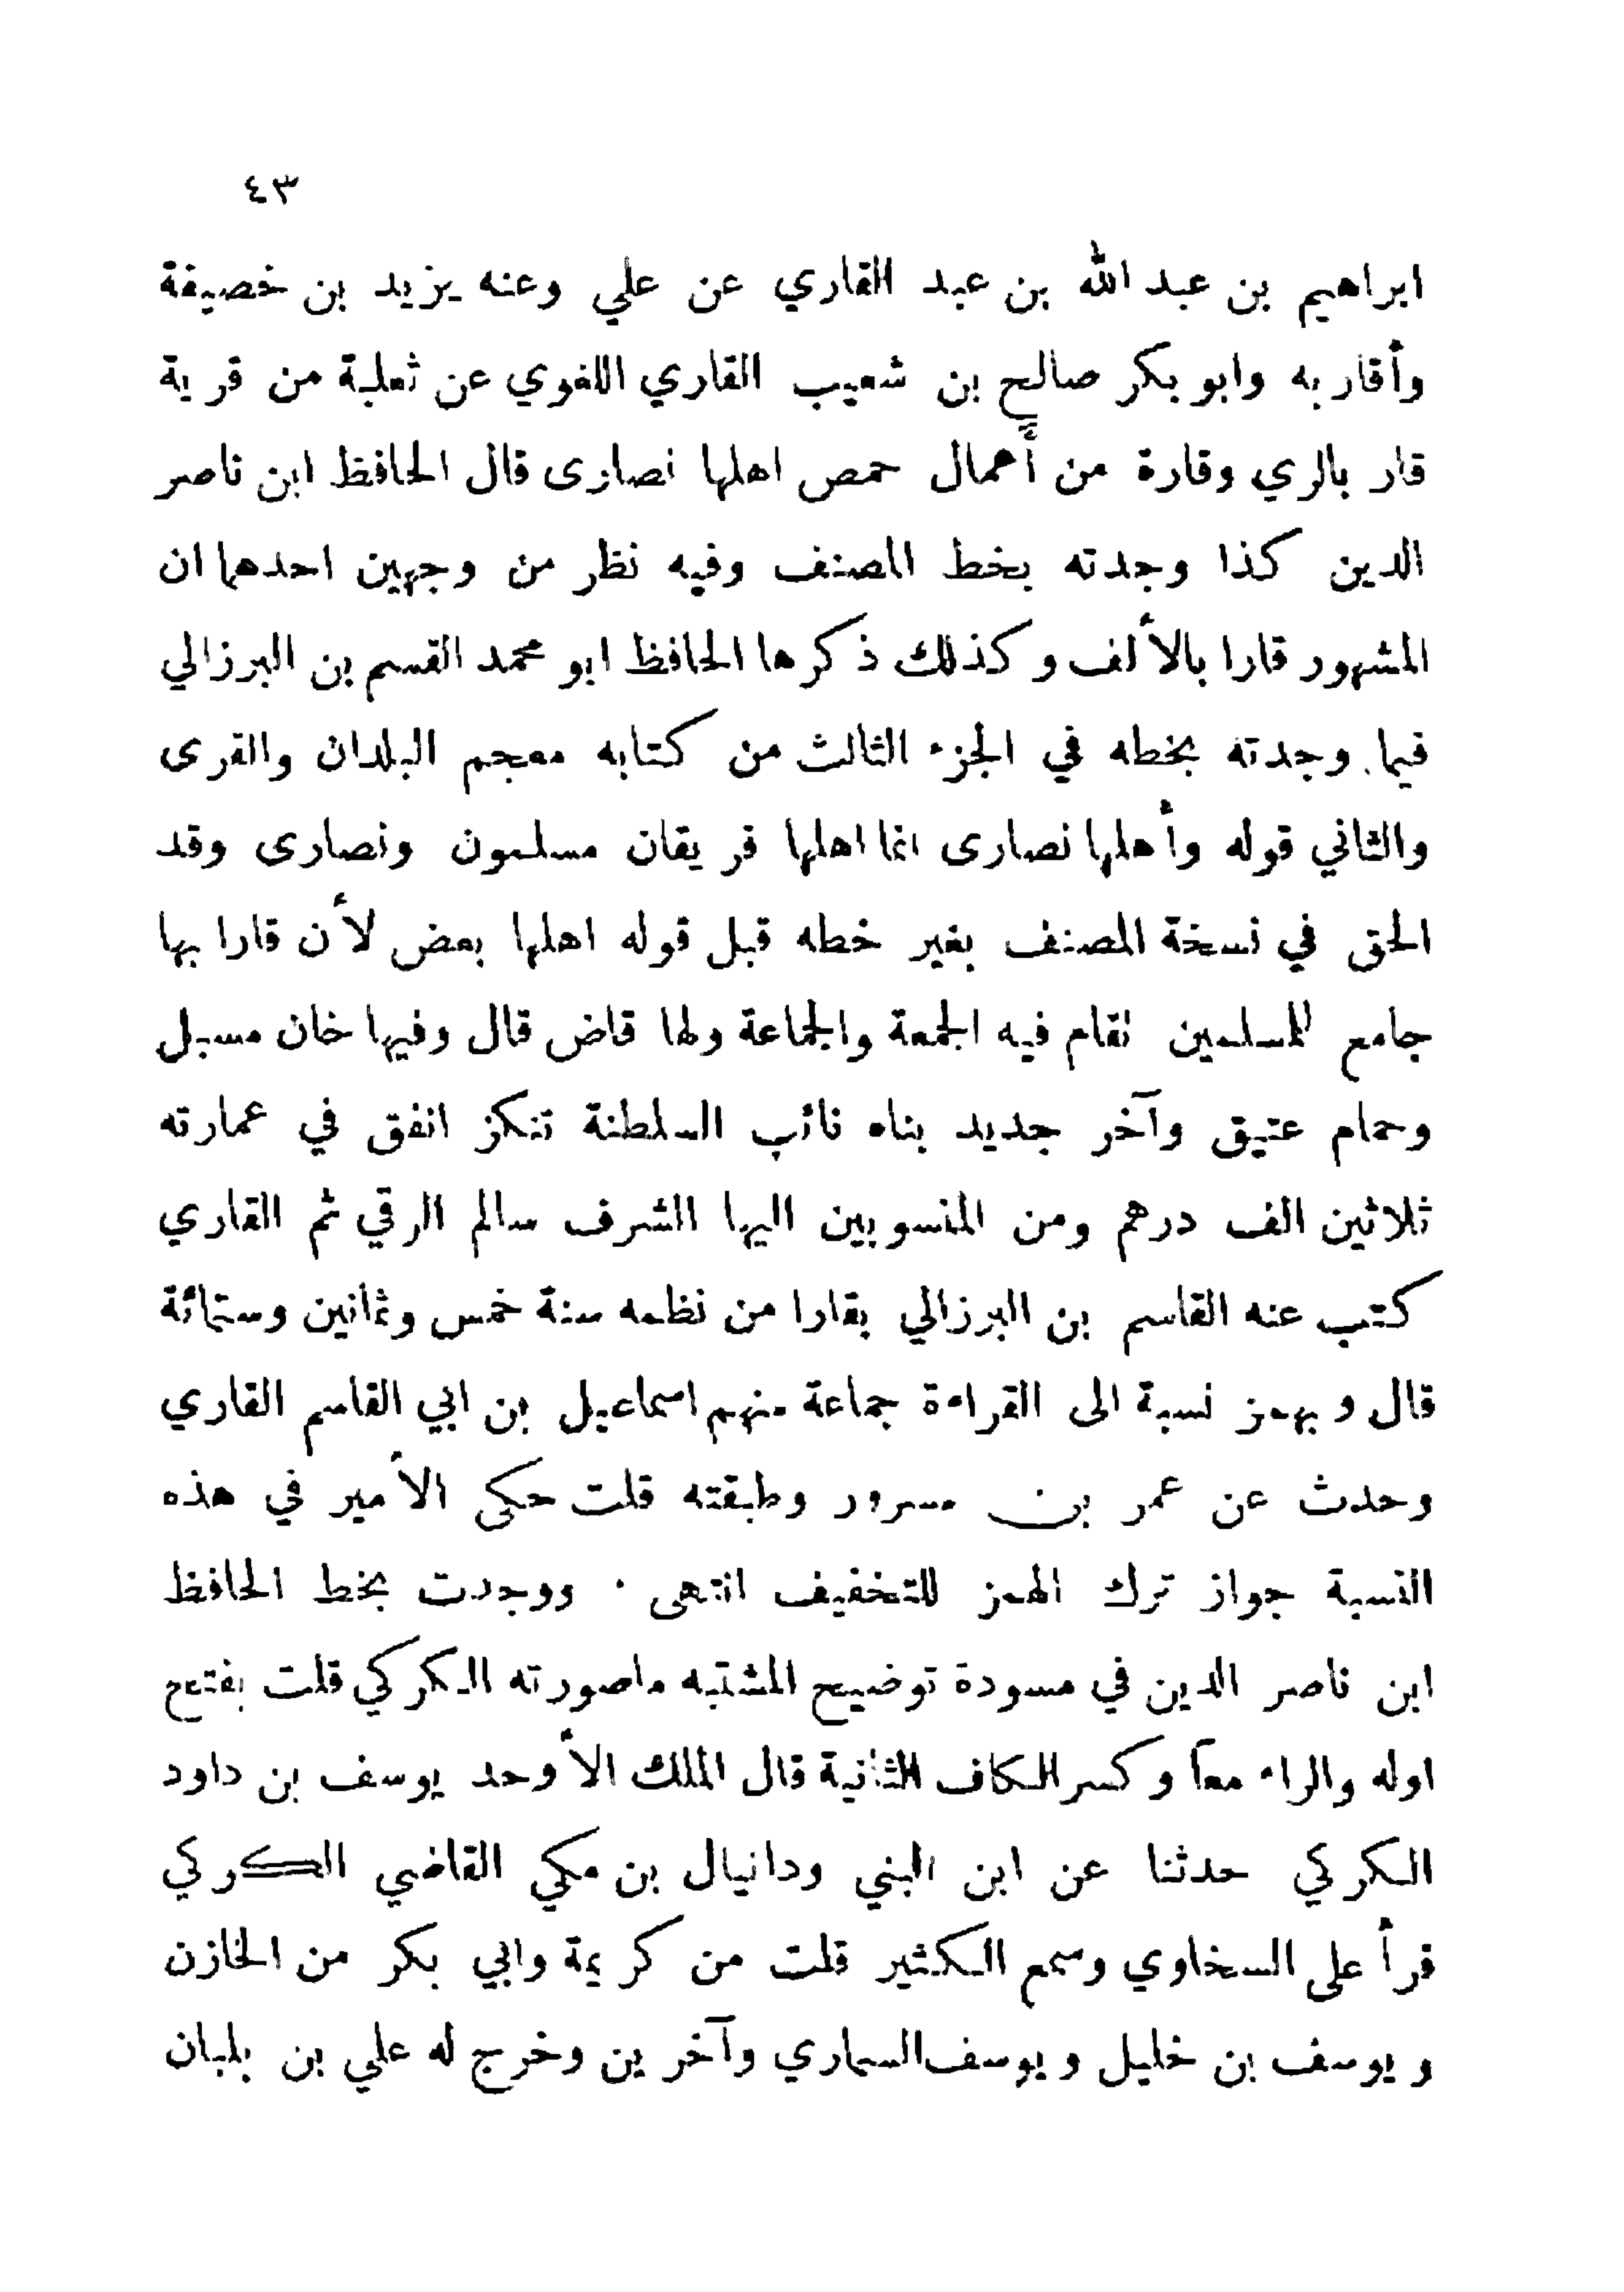 ٤٣
ابراهيم بن عبد الله بن عبد القاري عن علي وعنه يزيد بن خصيفة
وأقاربه وابو بكر صالح بن شعيب القاري اللغوي عن ثعلبة من قرية
قار بالري وقارة من أعمال حمص اهلها نصارى قال الحافظ ابن ناصر
الدين كذا وجدته بخط المصنف وفيه نظر من وجهين احدهما ان
المشهور قارا بالألف وكذلك ذكرها الحافظ ابو محمد القسم بن البرزالي
فيما وجدته بخطه في الجزء الثالث من كتابه معجم البلدان والقرى
والثاني قوله وأهلها نصارى انما اهلها فريقان مسلمون ونصارى وقد
الحق في نسخة المصنف بغير خطه قبل قوله اهلها بعض لأن قارا بها
جامع للمسلمين تقام فيه الجمعة والجماعة ولها قاض قال وفيها خان مسبل
وحمام عتيق وآخر جديد بناه نائب السلطنة تنكز انفق في عمارته
ثلاثين الف درهم ومن المنسوبين اليها الشرف سالم الرقي ثم القاري
كتب عنه القاسم بن البرزالي بقارا من نظمه سنة خمس وثمانين وستمائة
قال وبهمز نسبة الى القراءة جماعة منهم اسماعيل بن ابي القاسم القاري
وحدث عن عمر بن مسرور وطبقته قلت حكى الأمير في هذه
النسبة جواز ترك الهمز للتخفيف انتهى · ووجدت بخط الحافظ
ابن ناصر الدين في مسودة توضيح المشتبه ماصورته الكركي قلت بفتح
اوله والراء معاً وكسر الكاف الثانية قال الملك الأوحد يوسف بن داود
الكركي حدثنا عن ابن البني ودانيال بن مكي القاضي الكركي
قرأ على السخاوي وسمع الكثير قلت من كريمة وابي بكر من الخازن
ويوسف بن خليل ويوسف السماري وآخرين وخرج له علي بن بلبان